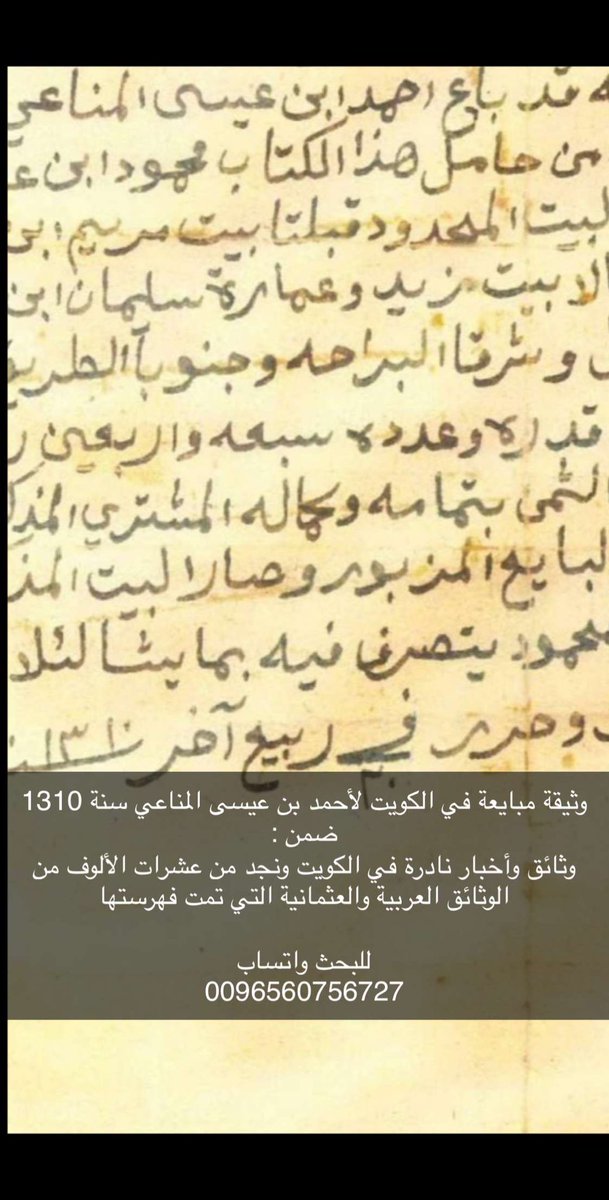 قد باع احمد ابن عيسى المناعي
من حامل هذا الكتاب محمود ابن
البيت المحدود قبلتا بيت مريم ابن
بيت مزيد وعمارة سليمان ابن
وشرقا البراحه وجنوباً الطريق
قدره وعدده سبعه واربعين
الثمن بتمامه وكماله المشتري
البايع المزبور وصار البيت
محمود يتصرف فيه بما يشا
وحرر في ربيع آخر ١٣١٠
وثيقة مبايعة في الكويت لأحمد بن عيسى المناعي سنة 1310
ضمن :
وثائق وأخبار نادرة في الكويت ونجد من عشرات الألوف من
الوثائق العربية والعثمانية التي تمت فهرستها
للبحث واتساب
0096560756727